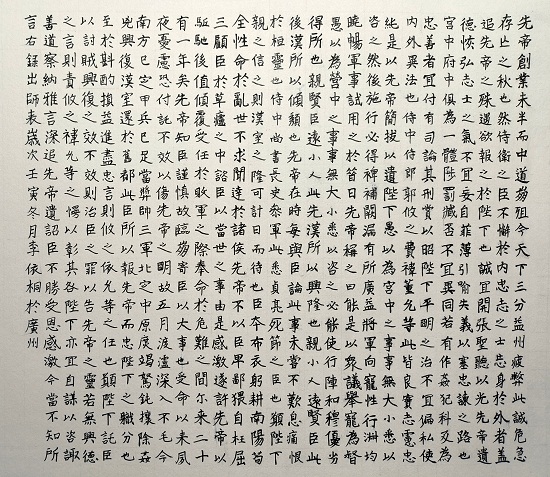 先帝創業未半而中道崩殂今天下三分益州疲弊此誠危急
存亡之秋也然侍衛之臣不懈於內忠志之士忘身於外者蓋
追先帝之殊遇欲報之於陛下也誠宜開張聖聽以光先帝遺
德恢弘志士之氣不宜妄自菲薄引喻失義以塞忠諫之路也
宮中府中俱為一體陟罰臧否不宜異同若有作姦犯科及為
忠善者宜付有司論其刑賞以昭陛下平明之治不宜偏私使
內外異法也侍中侍郎郭攸之費禕董允等此皆良實志慮忠
純是以先帝簡拔以遺陛下愚以為宮中之事事無大小悉以
咨之然後施行必得裨補闕漏有所廣益將軍向寵性行淑均
曉暢軍事試用之於昔日先帝稱之曰能是以眾議舉寵為督
愚以為營中之事事無大小悉以咨之必能使行陣和穆優劣
得所也親賢臣遠小人此先漢所以興隆也親小人遠賢臣此
後漢所以傾頹也先帝在時每與臣論此事未嘗不歎息痛恨
於桓靈也侍中尚書長史參軍此悉貞亮死節之臣也願陛下
親之信之則漢室之隆可計日而待也臣本布衣躬耕南陽苟
全性命於亂世不求聞達於諸侯先帝不以臣卑鄙猥自枉屈
三顧臣於草廬之中諮臣以當世之事由是感激遂許先帝以
驅馳後值傾覆受任於敗軍之際奉命於危難之間尔來二十
有一年矣先帝知臣謹慎故臨崩寄臣以大事也受命以來夙
夜憂慮恐付託不效以傷先帝之明故五月渡瀘深入不毛今
南方已定甲兵已足當獎帥三軍北定中原庶竭駑鈍攘除姦
兇興復漢室還於舊都此臣所以報先帝而忠陛下之職分也
至於斟酌損益進盡忠言則攸之禕允等之任也願陛下託臣
以討賊興復之效不效則治臣之罪以告先帝之靈若無興德
之言則責攸之禕允等之慢以彰其咎陛下亦宜自謀以咨諏
善道察納雅言深追先帝遺詔臣不勝受恩感激今當不知所
言右錄出師表歲次壬寅冬月李依桐於廣州